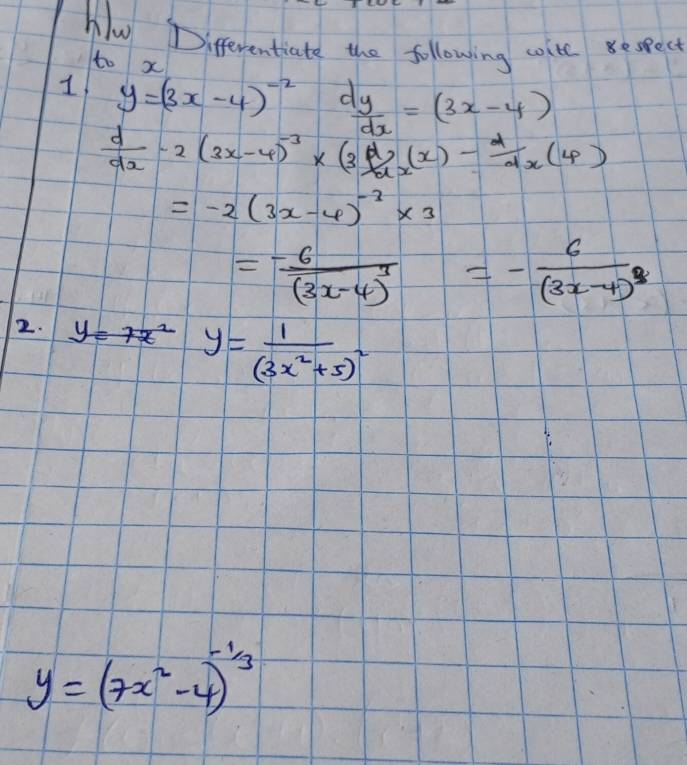 h/w Differentiate the following with respect
to x
1. y=(3x-4)^-2 dy/dx = (3x-4)
d/dx -2(3x-4)^-3 × (3 d/dx(x) - d/dx(4)
= -2(3x-4)^-3 × 3
= -6/(3x-4)^3 = - 6/(3x-4)^3
2. y=7x^2 y= 1/(3x^2+5)^2
y=(7x^2-4)^-1/3